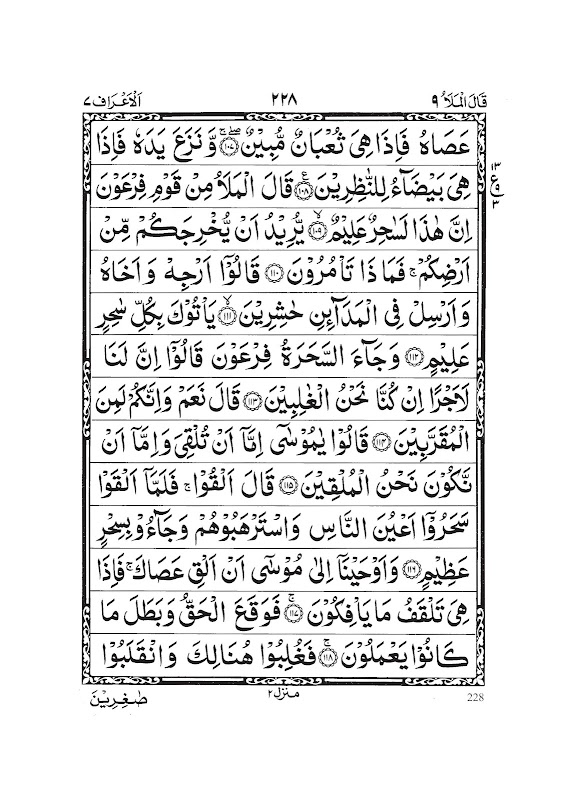 قَالَ الْمَلَاُ ٩ ٢٢٨ اَلْاَعْرَاف ٧
عَصَاهُ فَاِذَا هِیَ ثُعْبَانٌ مُّبِیْنٌ ﴿١٠٧﴾ وَّ نَزَعَ یَدَهٗ فَاِذَا
هِیَ بَیْضَآءُ لِلنّٰظِرِیْنَ ﴿١٠٨﴾ قَالَ الْمَلَاُ مِنْ قَوْمِ فِرْعَوْنَ
اِنَّ هٰذَا لَسٰحِرٌ عَلِیْمٌ ﴿١٠٩﴾ یُّرِیْدُ اَنْ یُّخْرِجَكُمْ مِّنْ
اَرْضِكُمْ ۚ فَمَا ذَا تَاْمُرُوْنَ ﴿١١٠﴾ قَالُوْۤا اَرْجِهْ وَ اَخَاهُ
وَ اَرْسِلْ فِی الْمَدَآئِنِ حٰشِرِیْنَ ﴿١١١﴾ یَاْتُوْكَ بِكُلِّ سٰحِرٍ
عَلِیْمٍ ﴿١١٢﴾ وَ جَآءَ السَّحَرَةُ فِرْعَوْنَ قَالُوْۤا اِنَّ لَنَا
لَاَجْرًا اِنْ كُنَّا نَحْنُ الْغٰلِبِیْنَ ﴿١١٣﴾ قَالَ نَعَمْ وَ اِنَّكُمْ لَمِنَ
الْمُقَرَّبِیْنَ ﴿١١٤﴾ قَالُوْا یٰمُوْسٰۤی اِمَّاۤ اَنْ تُلْقِیَ وَ اِمَّاۤ اَنْ
نَّكُوْنَ نَحْنُ الْمُلْقِیْنَ ﴿١١٥﴾ قَالَ اَلْقُوْا ۚ فَلَمَّاۤ اَلْقَوْا
سَحَرُوْۤا اَعْیُنَ النَّاسِ وَ اسْتَرْهَبُوْهُمْ وَ جَآءُوْ بِسِحْرٍ
عَظِیْمٍ ﴿١١٦﴾ وَ اَوْحَیْنَاۤ اِلٰی مُوْسٰۤی اَنْ اَلْقِ عَصَاكَ ۚ فَاِذَا
هِیَ تَلْقَفُ مَا یَاْفِكُوْنَ ﴿١١٧﴾ فَوَقَعَ الْحَقُّ وَ بَطَلَ مَا
كَانُوْا یَعْمَلُوْنَ ﴿١١٨﴾ فَغُلِبُوْا هُنَالِكَ وَ انْقَلَبُوْا
١٣
ع
٩
٣
228 منزل ٢ صٰغِرِیْنَ